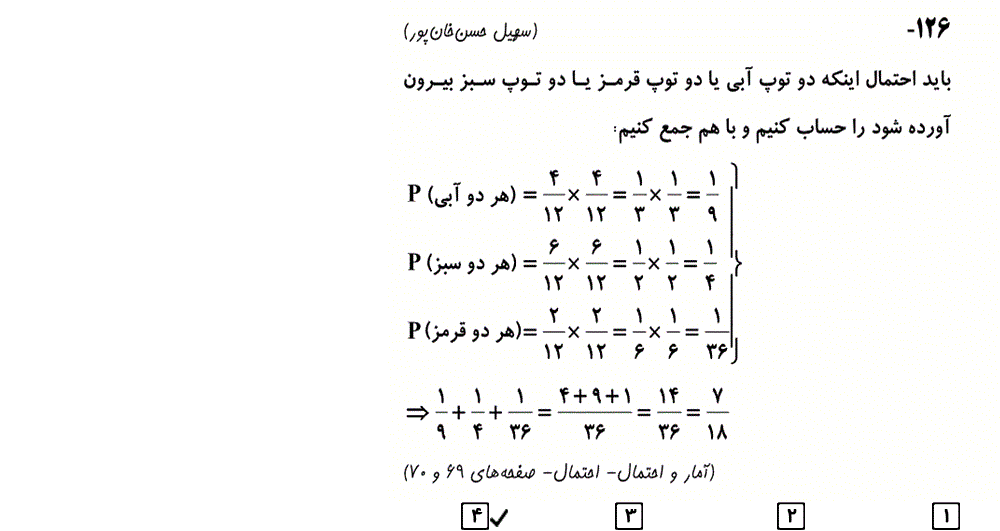 ۱۲۶- (سهیل حسن‌خان‌پور)
باید احتمال اینکه دو توپ آبی یا دو توپ قرمز یا دو توپ سبز بیرون
آورده شود را حساب کنیم و با هم جمع کنیم:
P (هر دو آبی) = ۴/۱۲ × ۴/۱۲ = ۱/۳ × ۱/۳ = ۱/۹
P (هر دو سبز) = ۶/۱۲ × ۶/۱۲ = ۱/۲ × ۱/۲ = ۱/۴
P (هر دو قرمز) = ۲/۱۲ × ۲/۱۲ = ۱/۶ × ۱/۶ = ۱/۳۶
⇒ ۱/۹ + ۱/۴ + ۱/۳۶ = (۴+۹+۱)/۳۶ = ۱۴/۳۶ = ۷/۱۸
(آمار و احتمال- احتمال- صفحه‌های ۶۹ و ۷۰)
۱ ۲ ۳ ۴✓